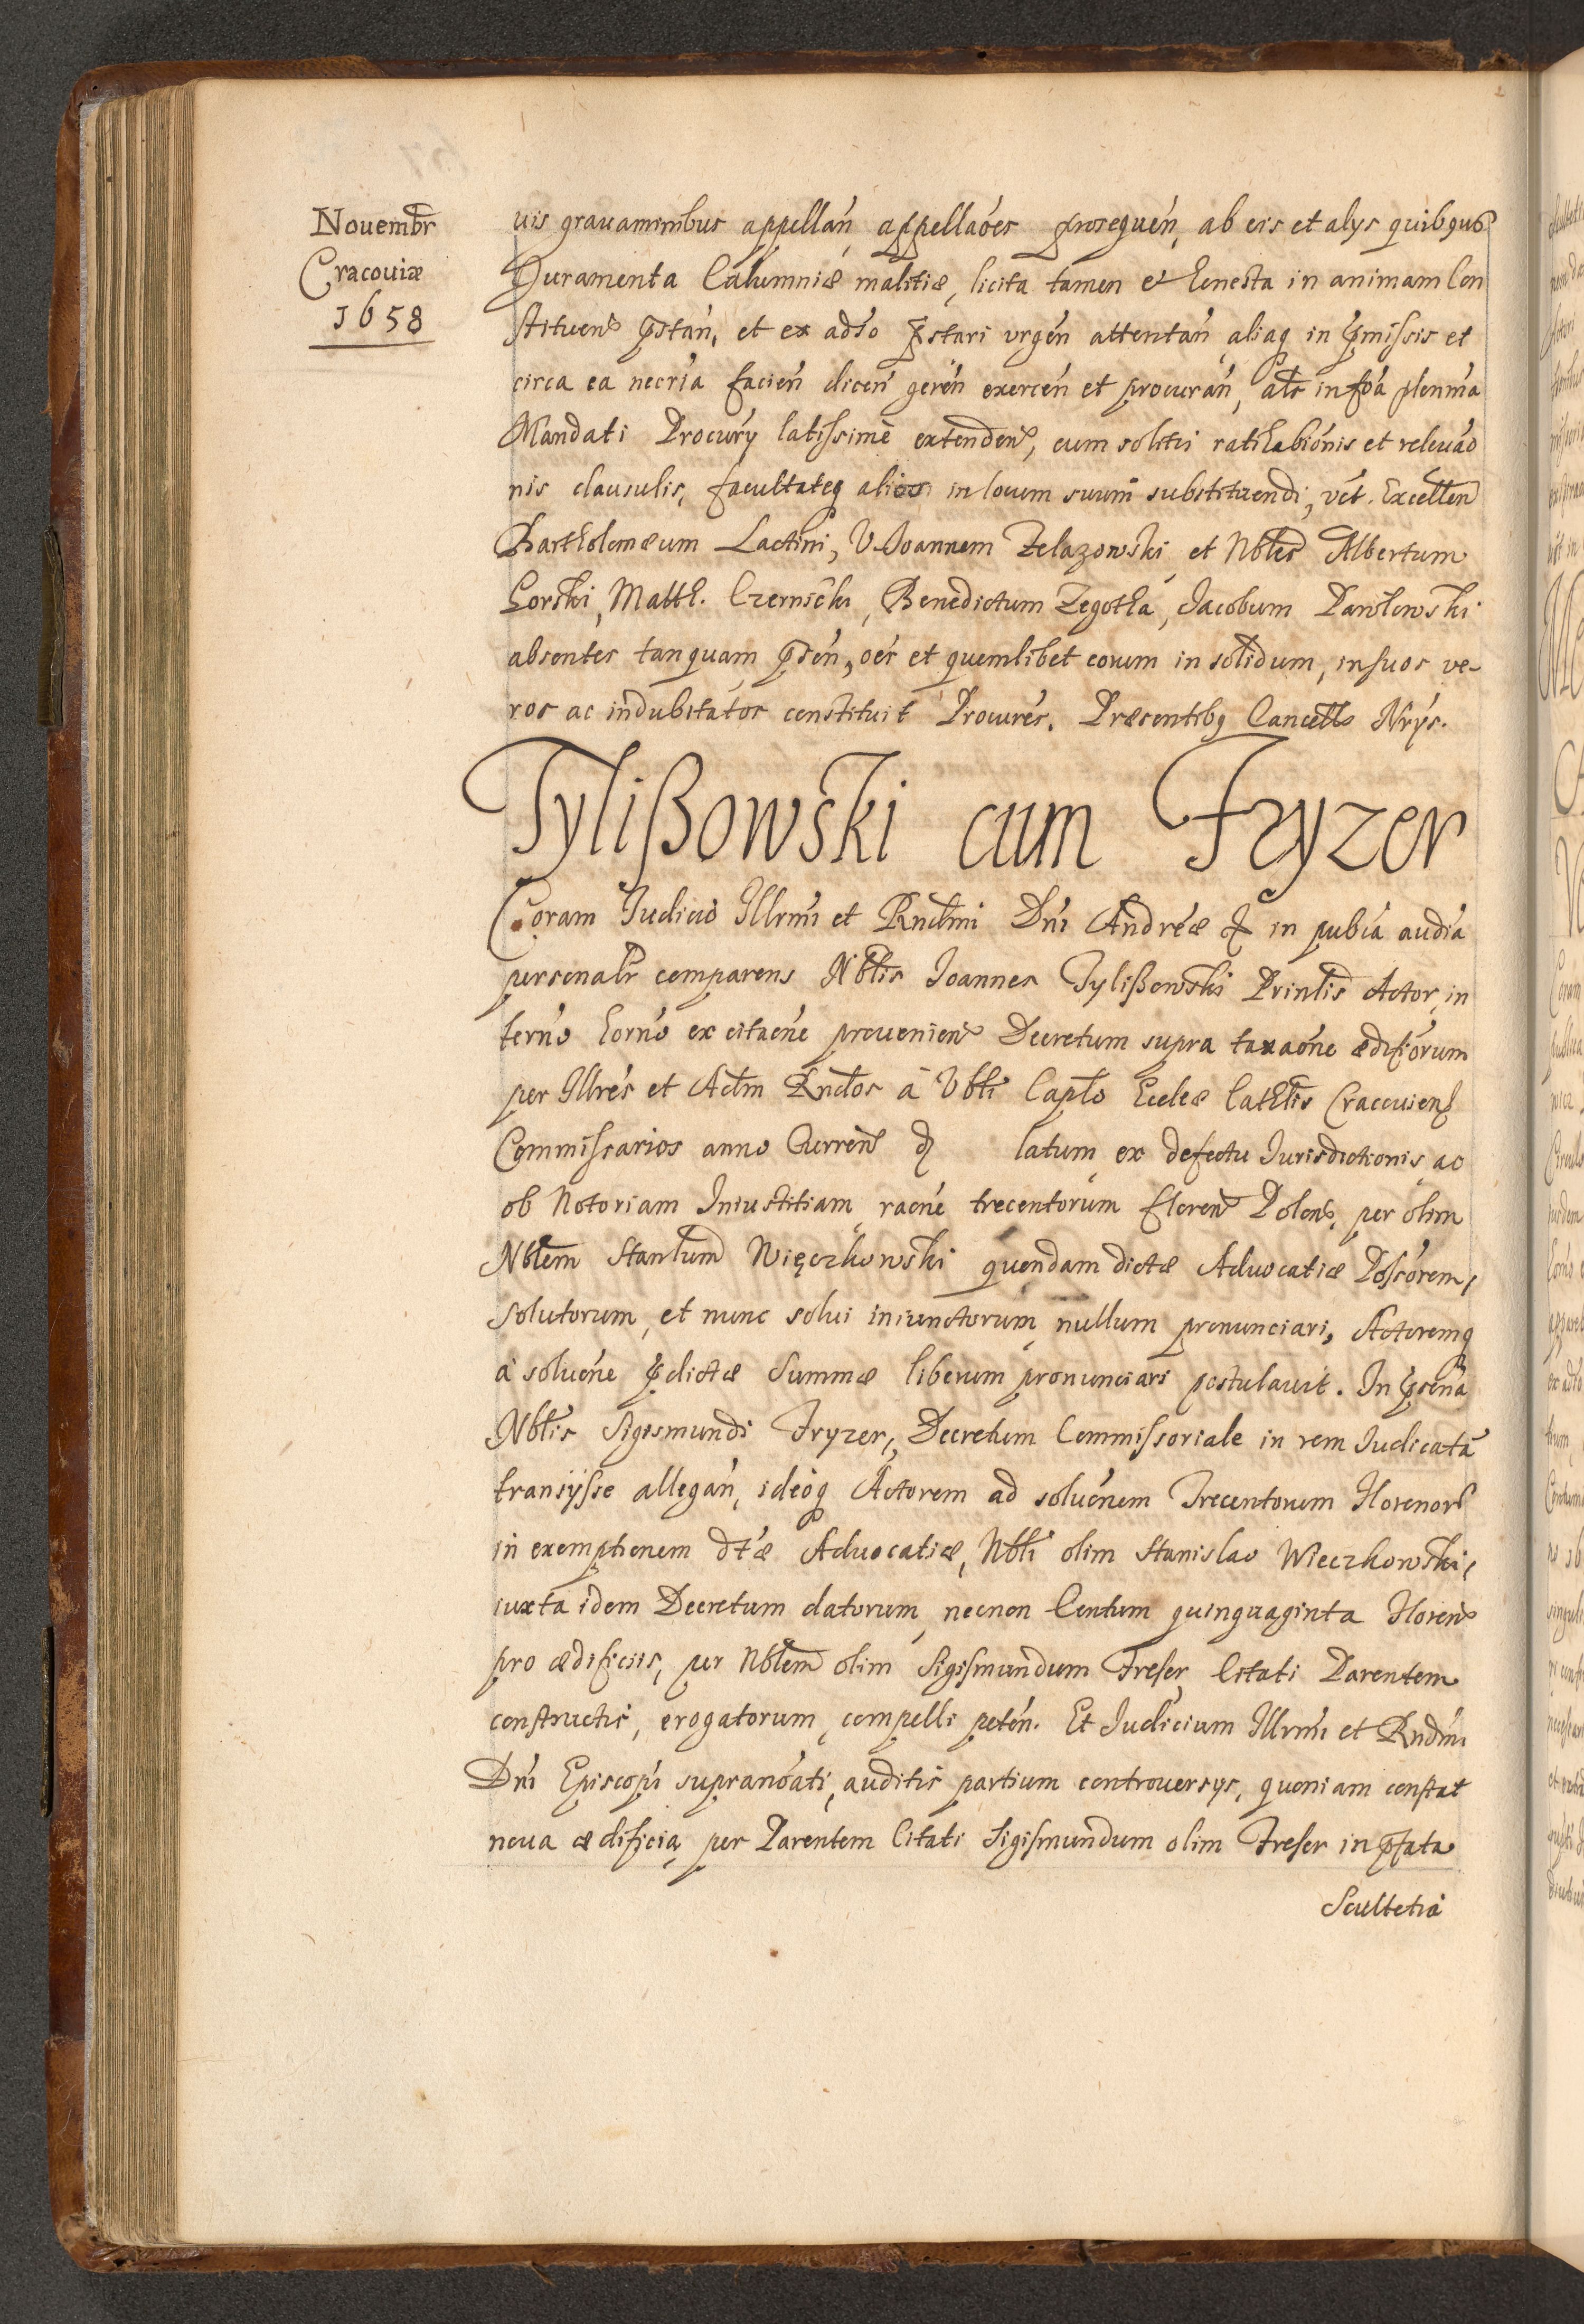 Nouembr
Cracouiæ
1658
uis grauaminibus appellan̄, appellaōes prosequen̄, ab eis et alys quibqus
Juramenta Calumniæ malitiæ, licita tamen et honesta in animam Con
stituen̄ p̄stan̄, et ex adso p̄stari urgen̄ attentan̄, aliaq in p̄missis et
circa ea necria facien̄ dicen̄ geren̄ exercen̄ et procuran̄, als in foa plenma
Mandati Procury latissime extenden̄, cum solitis ratihabionis et releuao
nis clausulis, facultateq alios in locum suum substituendi, vet. Excellen
Bartholomæum Lactini, V. Joannem Zelazowski, et Nbles Albertum
Gorski, Matth. Czernicki, Benedictum Zegotha, Jacobum Pawlowski
absentes tanquam p̄sen̄, oes et quemlibet eorum in solidum, in suos ve-
ros ac indubitatos constituit Procures. Præsentibq Cancells Nrys.
Tylißowski cum Fryzer
Coram Judicio Illrmi et Rndmi Dni Andreæ & in pubca audia
personalr comparens Nblis Joannes Tylißowski Prinlis Actor, in
terno horno ex citaone prouenien̄ Decretum supra taxaone ædifiorum
per Illres et Adm Rndos à Vbli Caplo Eccleæ Cathlis Cracouien̄
Commissarios anno Curren̄ & latum, ex defectu Jurisdictionis, ac
ob Notoriam Iniustitiam, raone trecentorum floren̄ Polon̄, per olim
Nblem Stanlum Więczkowski quendam dictæ Aduocatiæ Possorem,
solutorum, et nunc solui iniunctorum, nullum pronunciari, Actoremq
à soluone p̄dictæ summæ liberum pronunciari postulauit. In p̄sena
Nblis Sigismundi Fryzer, Decretum Commissoriale in rem Judicatā
transysse allegan̄, ideoq Actorem ad soluonem Trecentorum Florenor
in exemptionem dtæ Aduocatiæ, Nbli olim Stanislao Wieczkowski,
iuxta idem Decretum datorum, necnon Centum quinquaginta Floren̄
pro ædificiis, per Nblem olim Sigismundum Freser, Citati Parentem
constructis, erogatorum, compelli peten̄. Et Judicium Illrmi et Rndmi
Dni Episcopi supranoati, auditis partium controuersys, quoniam constat
noua ædificia, per Parentem Citati Sigismundum olim Freser in p̄fata
Scultetia